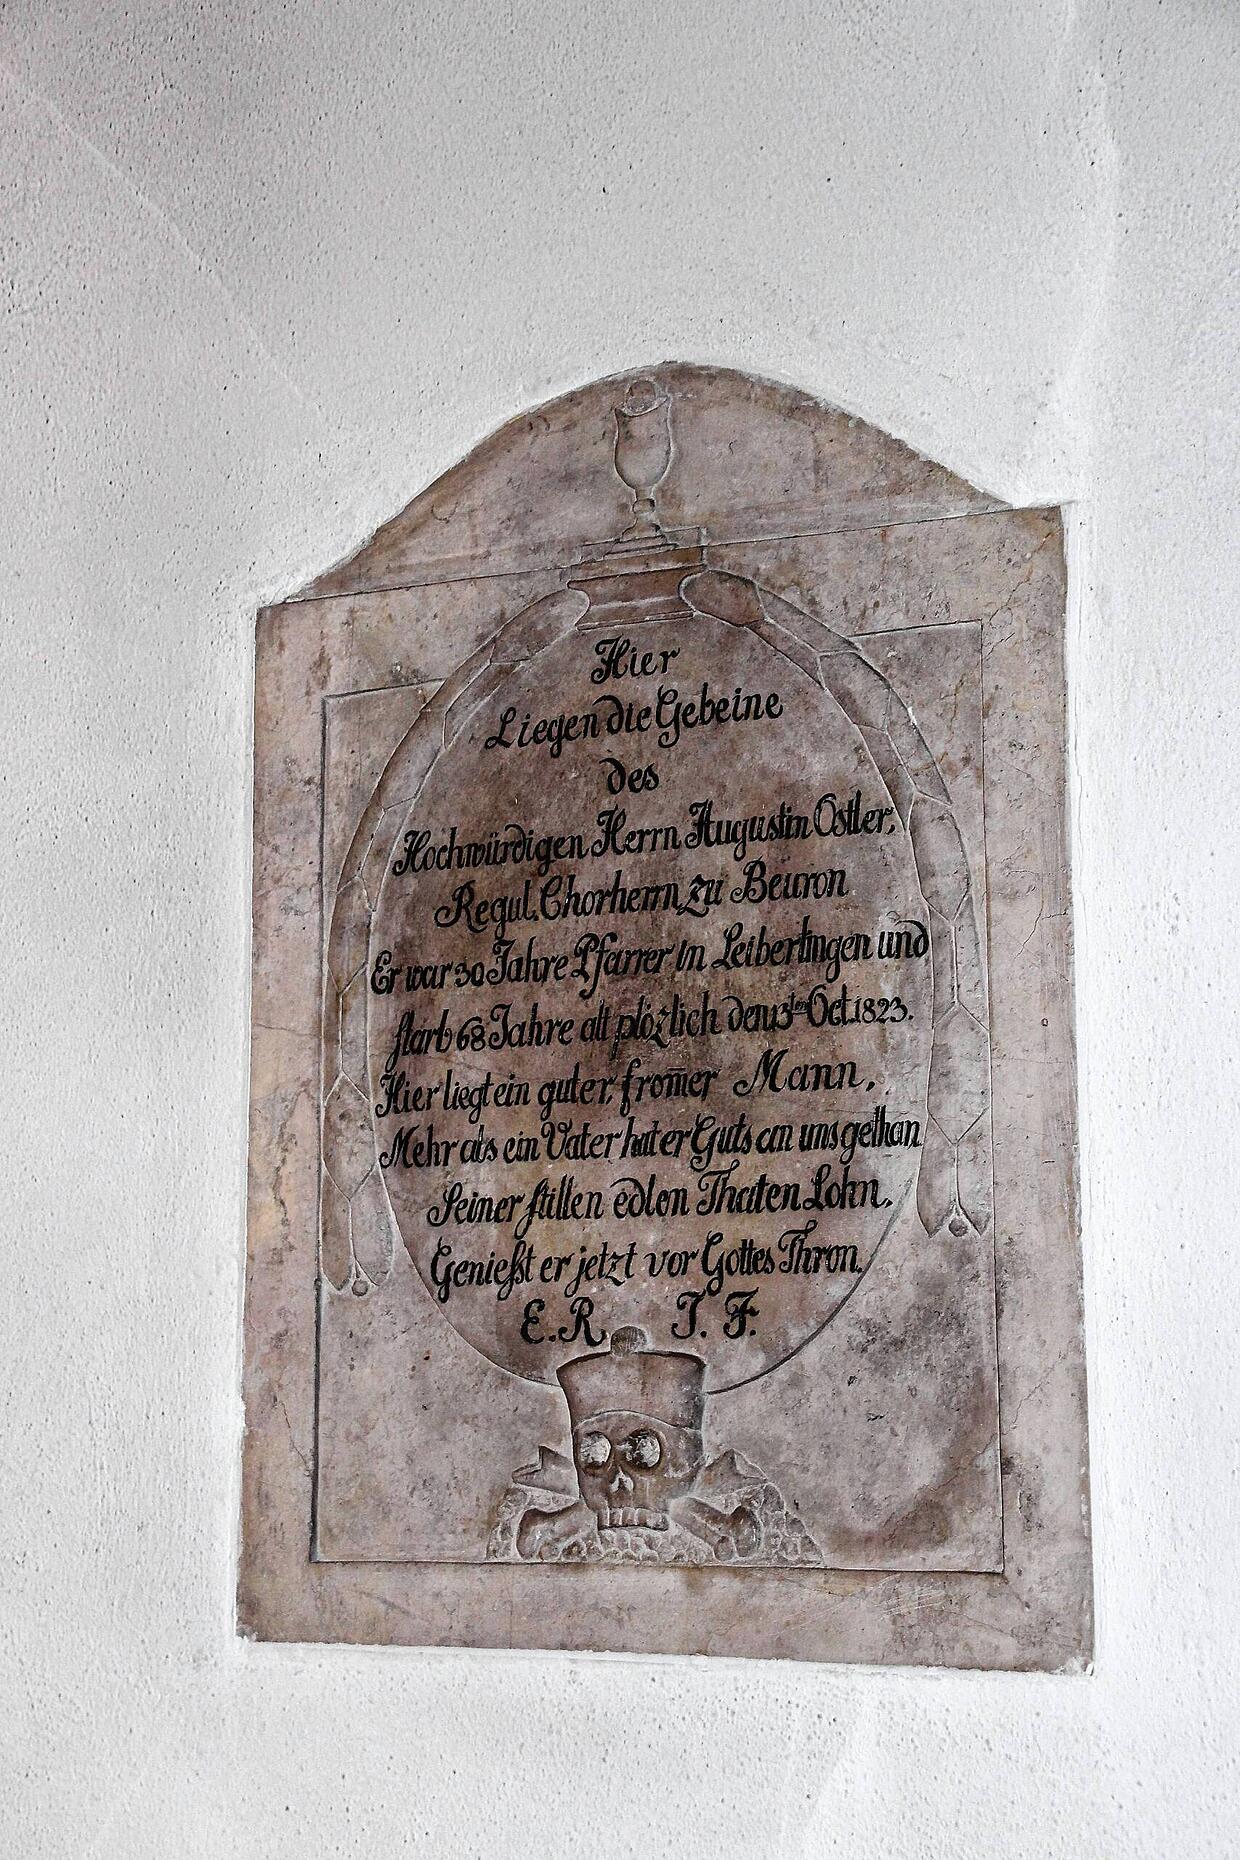 Hier
Liegen die Gebeine
des
Hochwürdigen Herrn Augustin Ostler,
Regul. Chorherrn zu Beuron
Er war 30 Jahre Pfarrer in Leibertingen und
starb 68 Jahre alt plözlich den 13ten Oct. 1823.
Hier liegt ein guter, from̅er Mann,
Mehr als ein Vater hat er Guts an uns gethan
Seiner stillen edlen Thaten Lohn,
Genießt er jetzt vor Gottes Thron.
E. R. I. F.